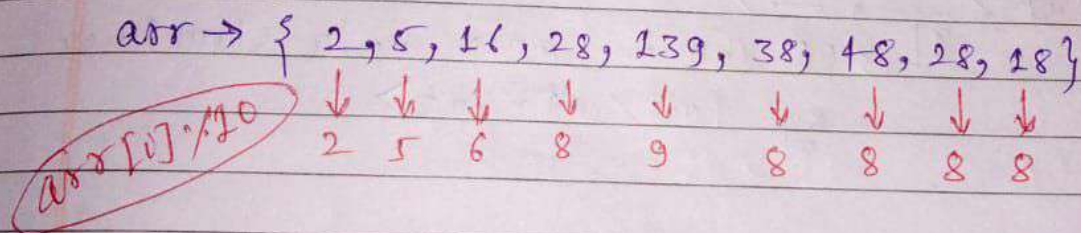 arr → { 2, 5, 16, 28, 139, 38, 48, 28, 18}
↓ ↓ ↓ ↓ ↓ ↓ ↓ ↓ ↓
arr[i] % 10 2 5 6 8 9 8 8 8 8